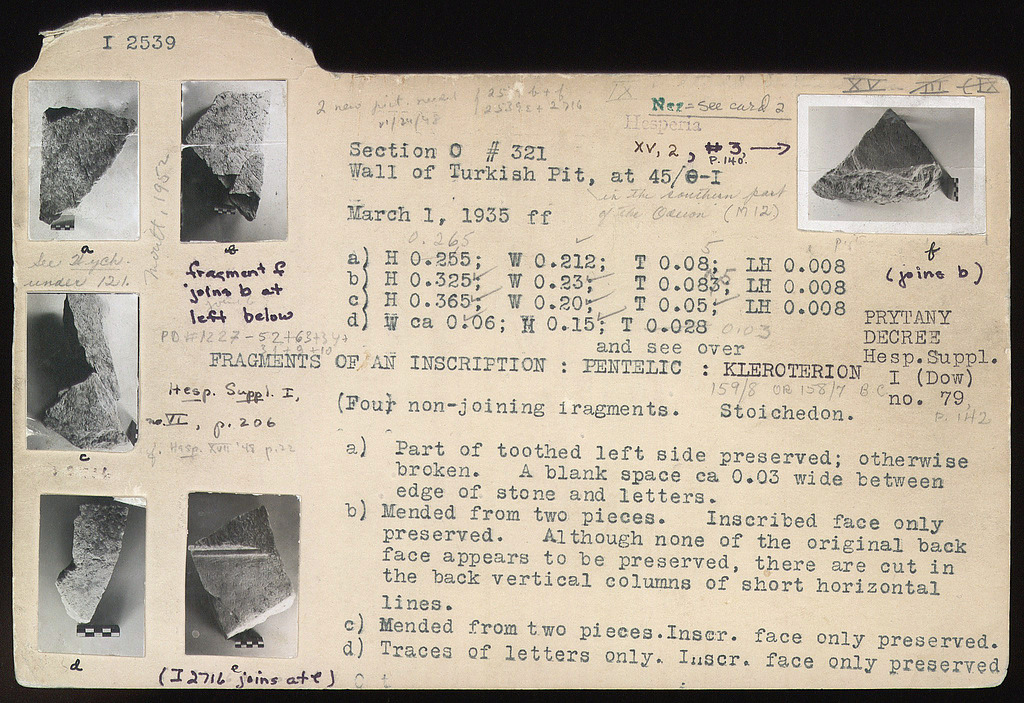 I 2539
2 new pict. neg.
IX
XV III (IX
Neg = see card 2
Hesperia
XV, 2, #3, →
p. 140.
Section O # 321
Wall of Turkish Pit, at 45/Θ-I
in the southern part
of the Odeion (M 12)
March 1, 1935 ff
0.265
a) H 0.255; W 0.212; T 0.08; LH 0.008
b) H 0.325; W 0.23; T 0.083; LH 0.008
c) H 0.365; W 0.20; T 0.05; LH 0.008
d) W ca 0.06; H 0.15; T 0.028 0.03
and see over
FRAGMENTS OF AN INSCRIPTION : PENTELIC : KLEROTERION
159/8 OR 158/7 B.C.
(Four) non-joining fragments. Stoichedon.
a) Part of toothed left side preserved; otherwise
broken. A blank space ca 0.03 wide between
edge of stone and letters.
b) Mended from two pieces. Inscribed face only
preserved. Although none of the original back
face appears to be preserved, there are cut in
the back vertical columns of short horizontal
lines.
c) Mended from two pieces. Inscr. face only preserved.
d) Traces of letters only. Inscr. face only preserved
f
(joins b)
PRYTANY
DECREE
Hesp. Suppl.
I (Dow)
no. 79,
p. 142
a
See
under 121.
1952
fragment f
joins b at
left below
Hesp. Suppl. I,
no. VI, p. 206
cf. Hesp. XVII '48 p. 22
c
d
e
(I 2716 joins at e)